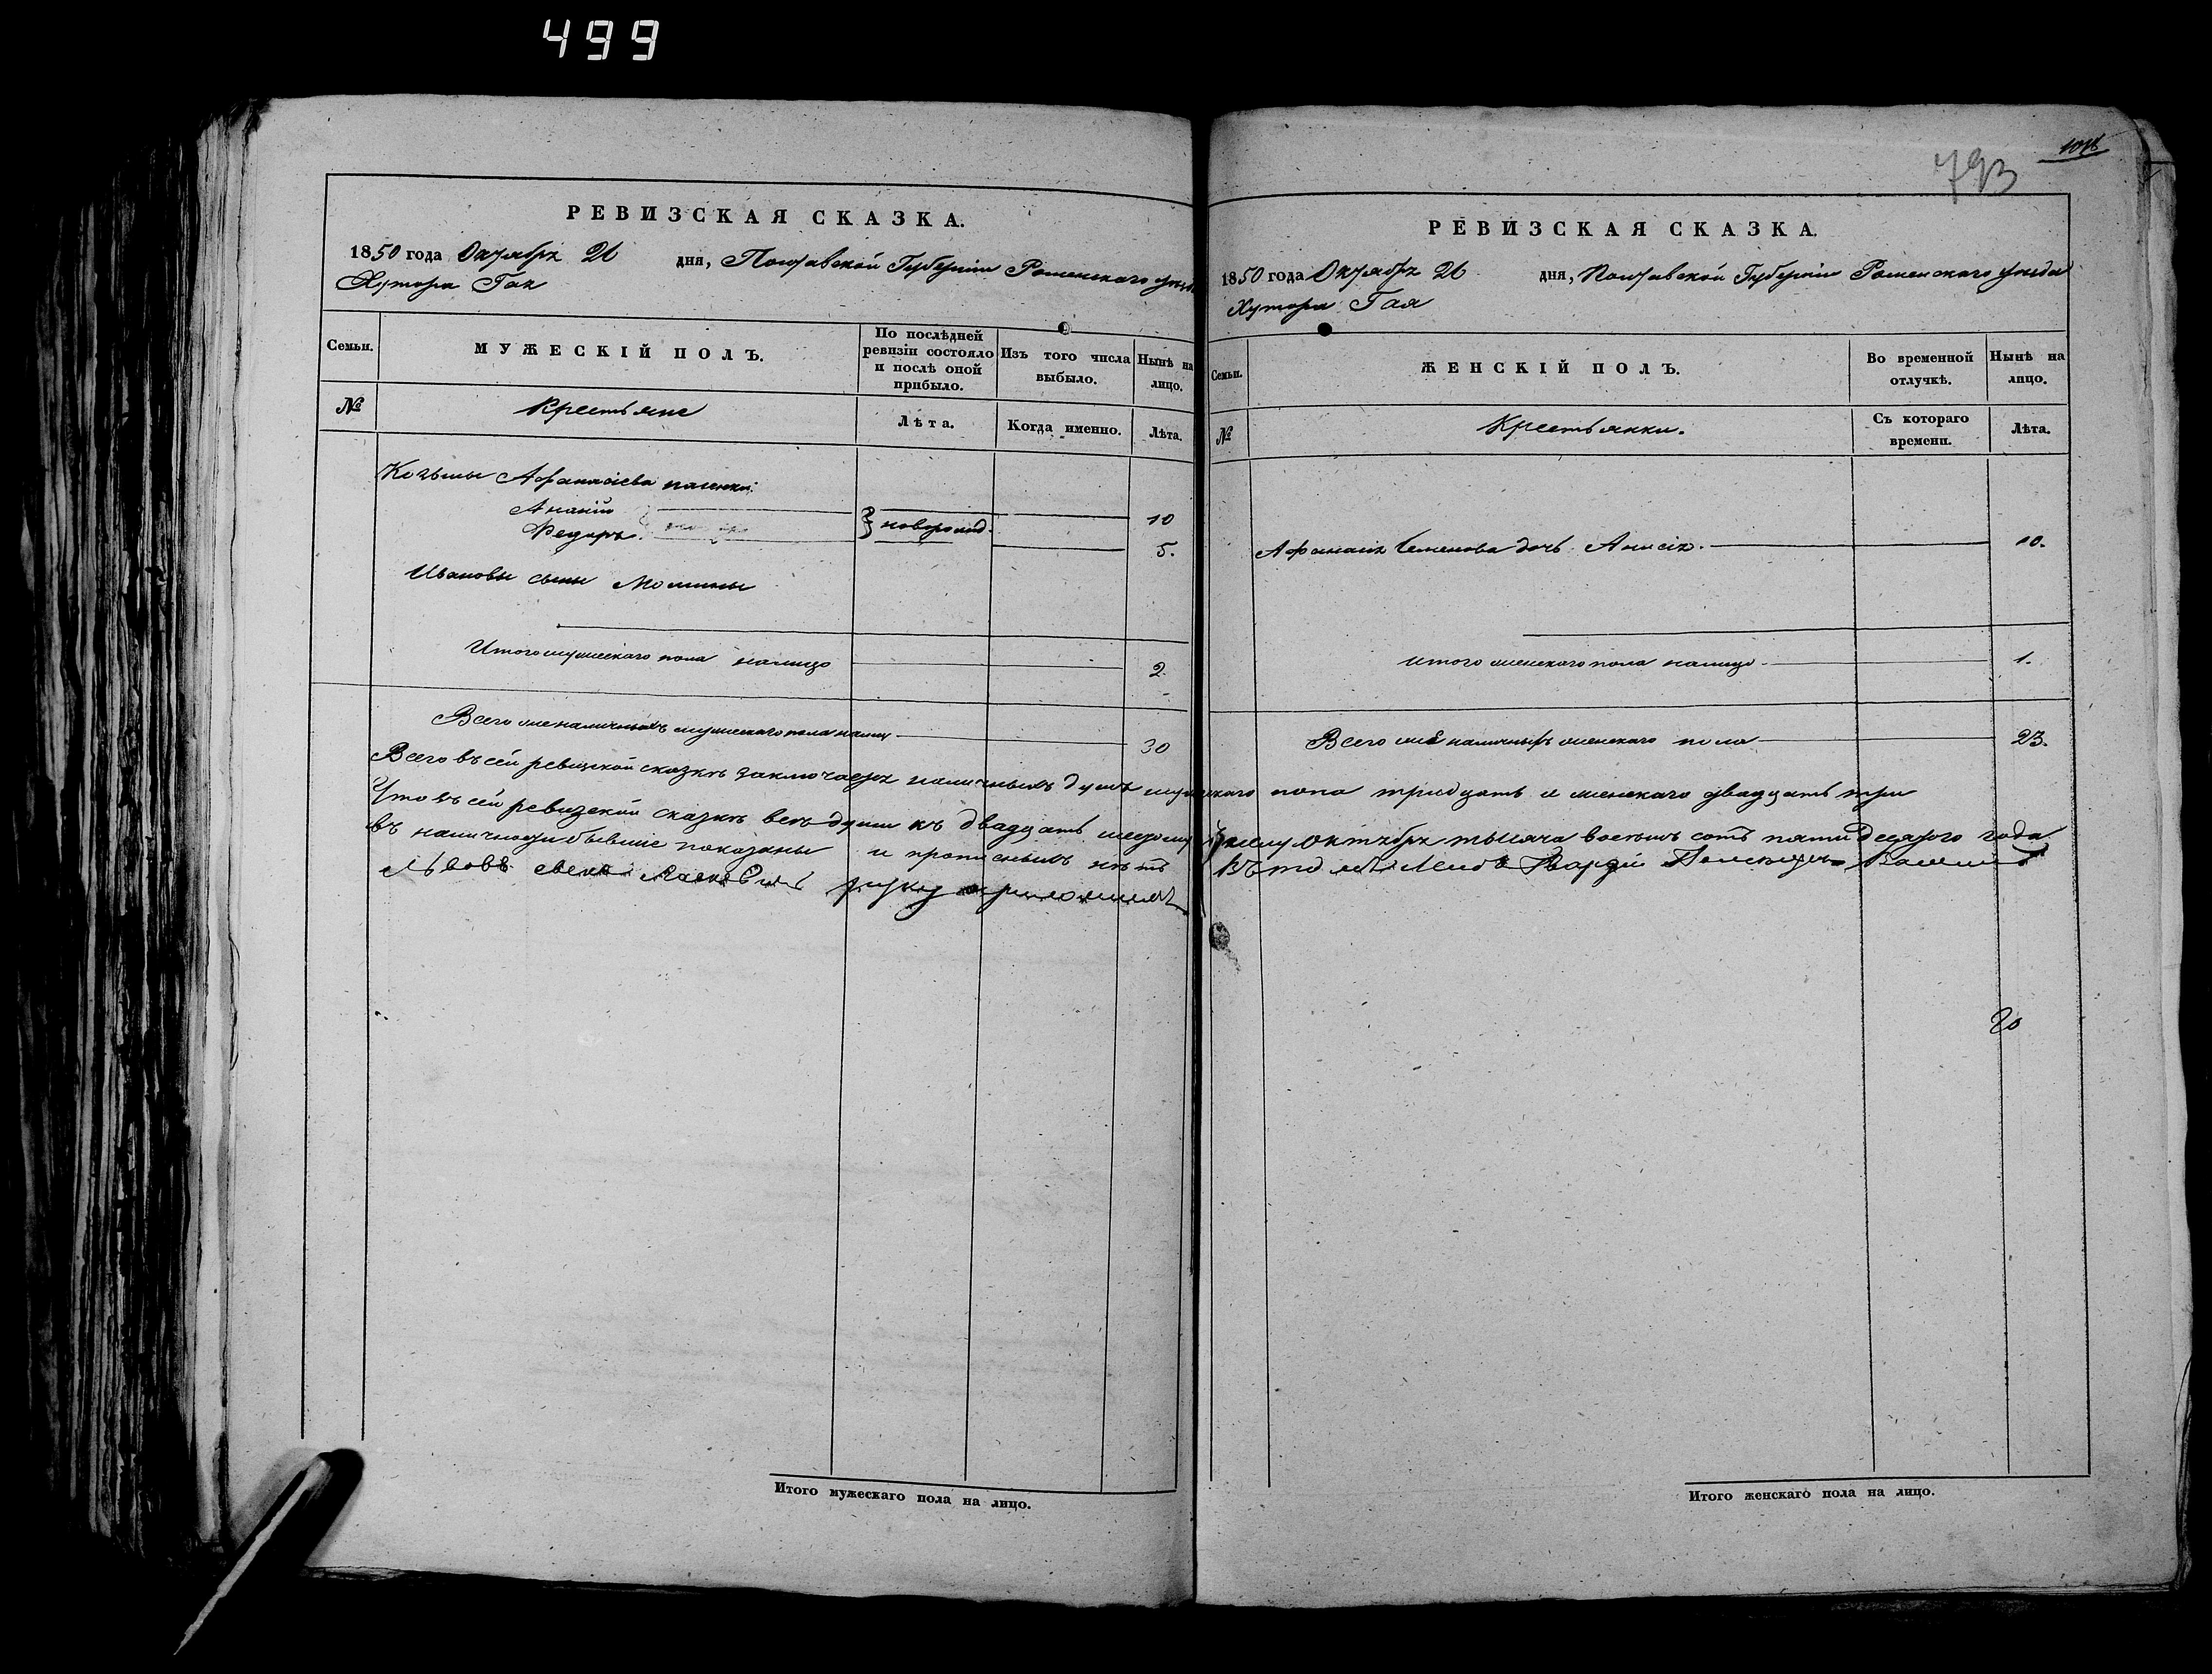 499
РЕВИЗСКАЯ СКАЗКА.
1850 года Октября 26 дня, Полтавской Губерніи Роменскаго уезда
Хутора Гая
Семьи.
МУЖЕСКІЙ ПОЛЪ.
По послѣдней ревизіи состояло и послѣ оной прибыло.
Изъ того числа выбыло.
Нынѣ на лицо.
№
Крестьяне
Лѣта.
Когда именно.
Лѣта.
Козьмы Афанасіева
Ананій
10
Федоръ
новорожд.
5.
Ивановы сыны
Итого мужескаго пола налицо
2.
Всего наличныхъ мужескаго пола
30
Всего въ сей ревизской сказкѣ заключается наличныхъ душъ мужескаго пола тридцать и женскаго двадцать три
Что въ сей ревизской сказкѣ всѣ души къ двадцать шестому числу октября тысяча восемь сотъ пятидесятого года
въ наличности бывшие показаны и прописныхъ нѣтъ
руку приложилъ
Итого мужескаго пола на лицо.
793
РЕВИЗСКАЯ СКАЗКА.
1850 года Октября 26 дня, Полтавской Губерніи Роменскаго уезда
Хутора Гая
Семьи.
ЖЕНСКІЙ ПОЛЪ.
Во временной отлучкѣ.
Нынѣ на лицо.
№
Крестьянки.
Съ котораго времени.
Лѣта.
Афанасія Семенова дочь Анисія.
10.
итого женскаго пола налицо
1.
Всего наличныхъ женскаго пола
23.
Итого женскаго пола на лицо.